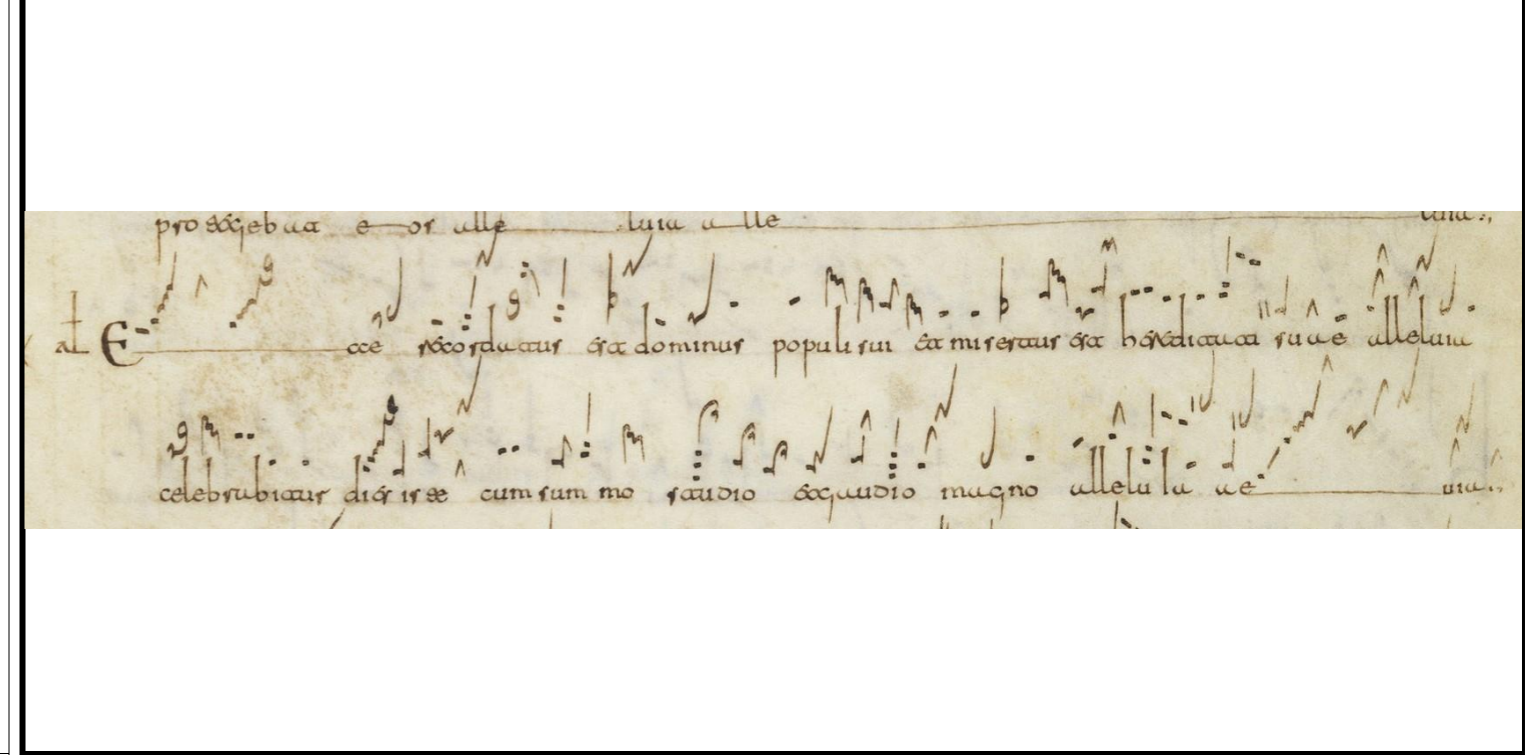 protegebat e os alle luia alle luia
al Ecce recordatus est dominus populi sui et misertus est hereditati suae alleluia
celebrabitur dies isee cum summo studio et gaudio magno alleluia ae uia